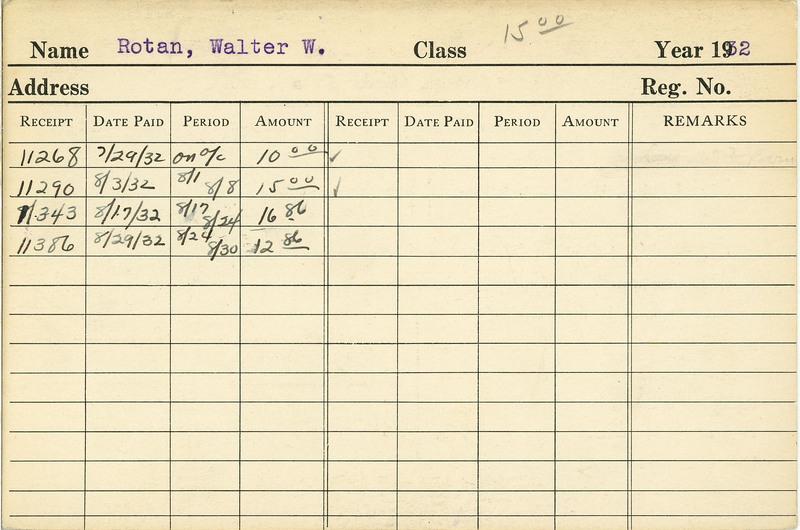 15 00
Name Rotan, Walter W. Class Year 1932
Address Reg. No.
RECEIPT DATE PAID PERIOD AMOUNT RECEIPT DATE PAID PERIOD AMOUNT REMARKS
11268 7/29/32 on a/c 10 00 ✓
11290 8/3/32 8/1 8/8 15 00 ✓
11343 8/17/32 8/17 8/24 16 86
11386 8/29/32 8/24 8/30 12 86